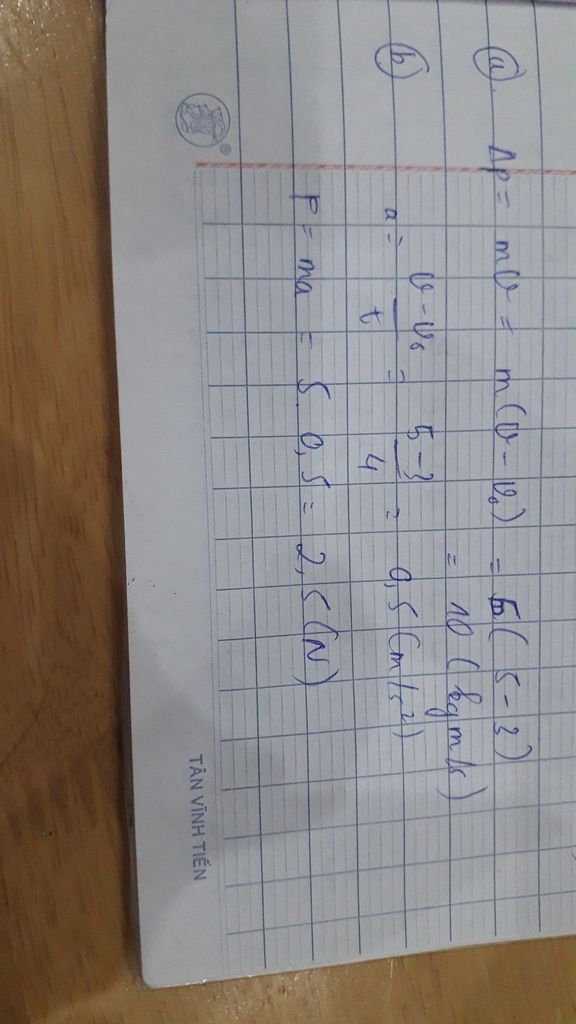 a. Δp = mv = m(v - v₀) = 5(5-3)
= 10 (kgm/s)
b a = \frac{v-v₀}{t} = \frac{5-3}{4} = 0,5 (m/s²)
F = ma = 5.0,5 = 2,5 (N)
®
TÂN VĨNH TIẾN